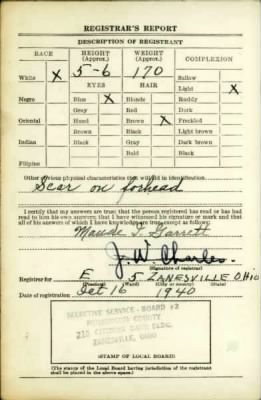 REGISTRAR'S REPORT
DESCRIPTION OF REGISTRANT
RACE HEIGHT (Approx.) WEIGHT (Approx.) COMPLEXION
White X 5-6 170 Sallow
EYES HAIR Light X
Negro Blue X Blonde Ruddy
Gray Red Dark
Oriental Hazel Brown X Freckled
Brown Black Light brown
Indian Black Gray Dark brown
Bald Black
Filipino
Other obvious physical characteristics that will aid in identification
Scar on forhead
I certify that my answers are true; that the person registered has read or has had
read to him his own answers; that I have witnessed his signature or mark and that
all of his answers of which I have knowledge are true, except as follows:
Maude T. Garrett
J. W. Charles
(Signature of registrar)
Registrar for E 5 ZANESVILLE OHIO
(Precinct) (Ward) (City or county) (State)
Date of registration Oct 16 1940
SELECTIVE SERVICE - BOARD #2
MUSKINGUM COUNTY
215 CITIZENS BANK BLDG.
ZANESVILLE, OHIO
(STAMP OF LOCAL BOARD)
(The stamp of the Local Board having jurisdiction of the registrant
shall be placed in the above space.)